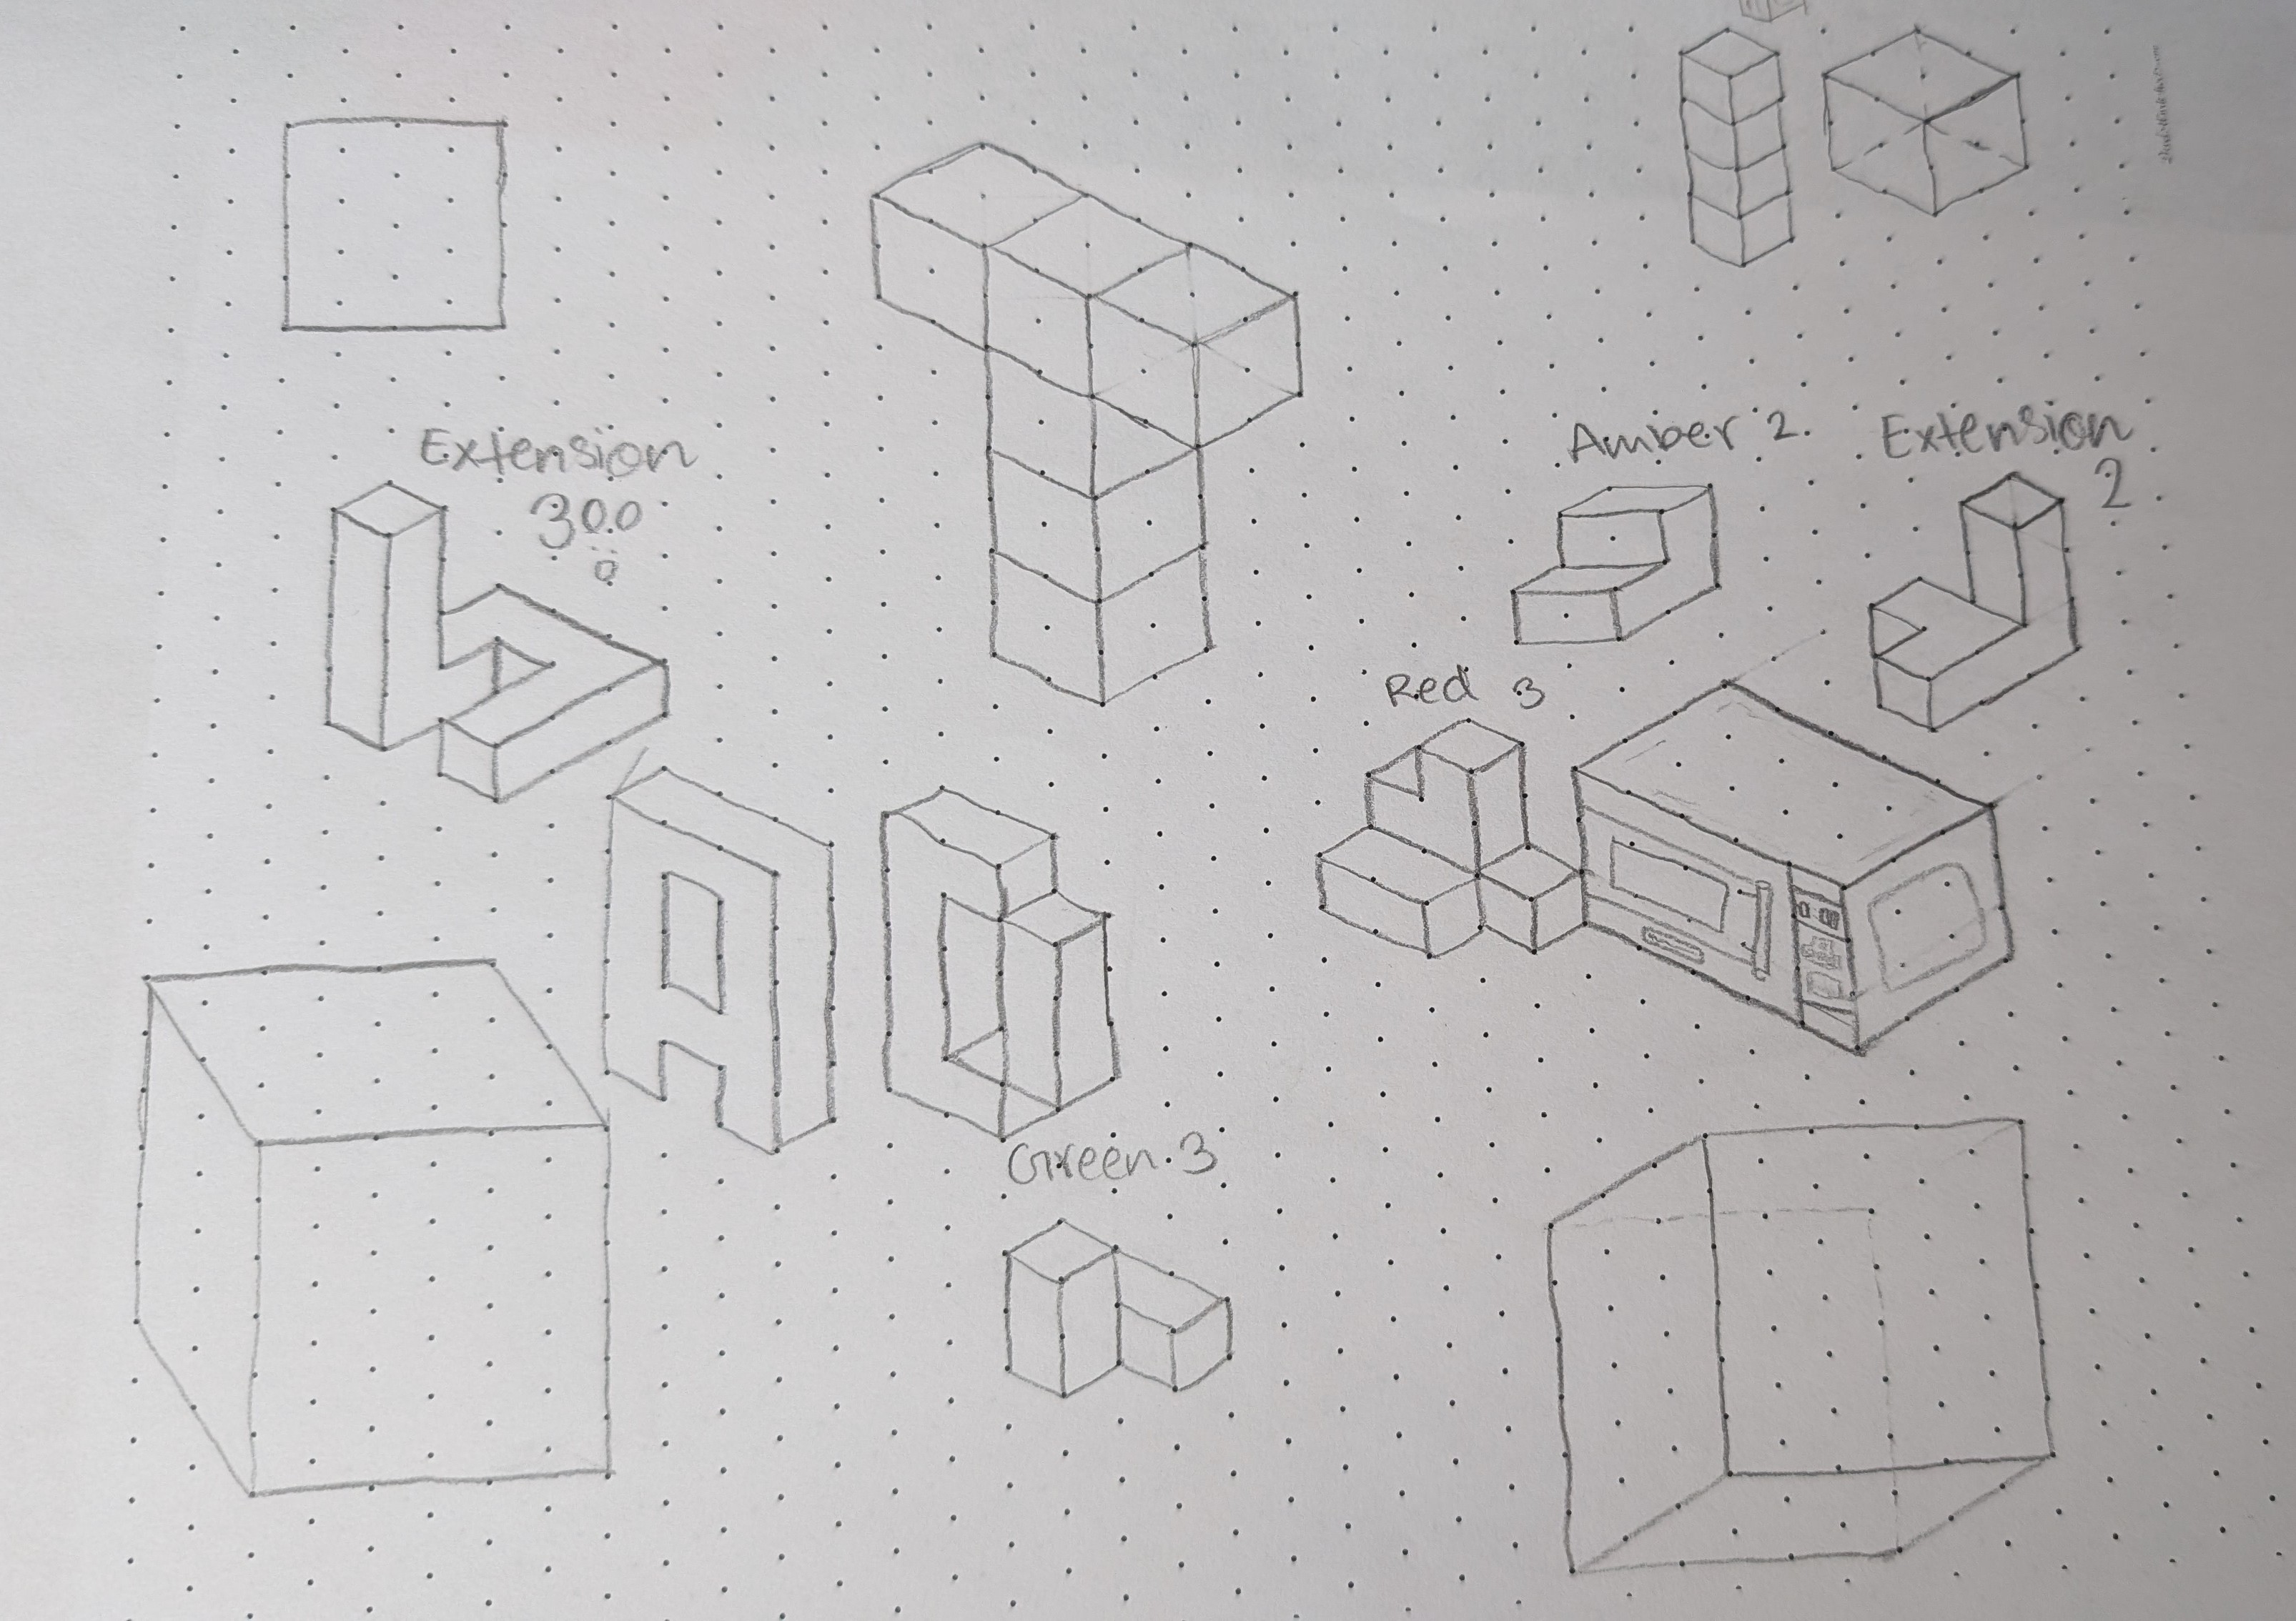 Extension
300
Amber 2.
Extension
2
Red 3
Green 3